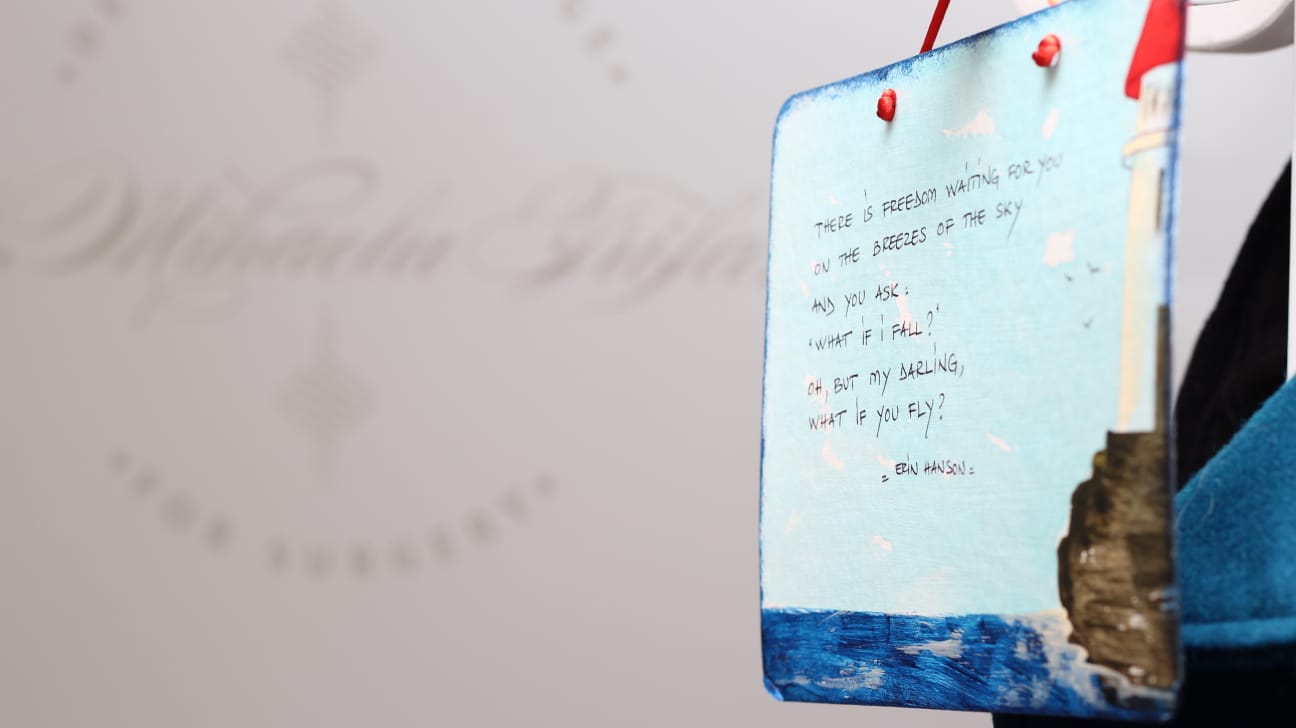 THERE IS FREEDOM WAITING FOR YOU
ON THE BREEZES OF THE SKY
AND YOU ASK:
"WHAT IF I FALL?"
OH, BUT MY DARLING,
WHAT IF YOU FLY?
= ERIN HANSON =
FOR SURGERY